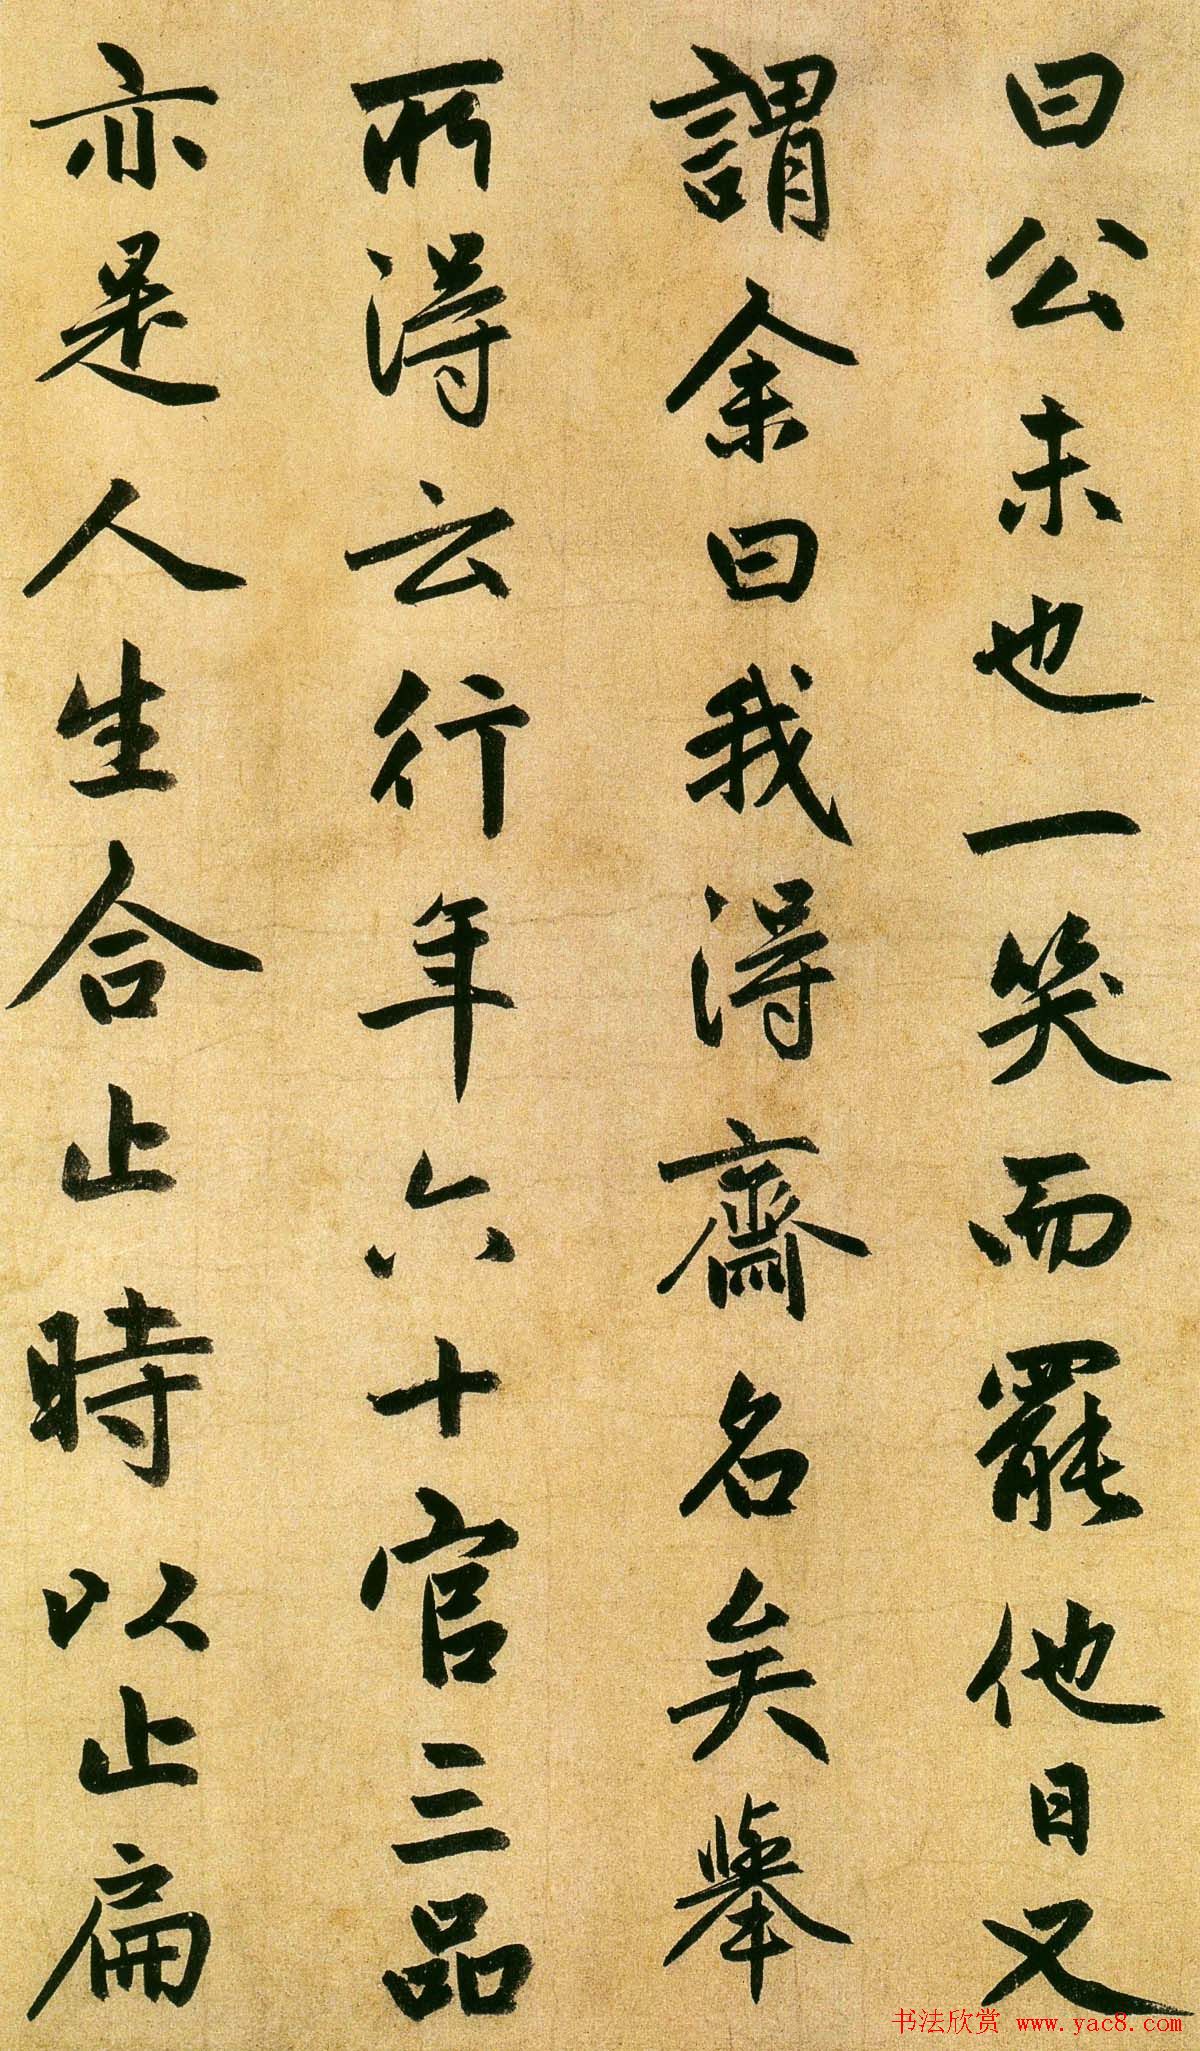 曰公未也一笑而罷他日又
謂余曰我得齋名矣舉
所得云行年六十官三品
亦是人生合止時以止扁
书法欣赏 www.yac8.com